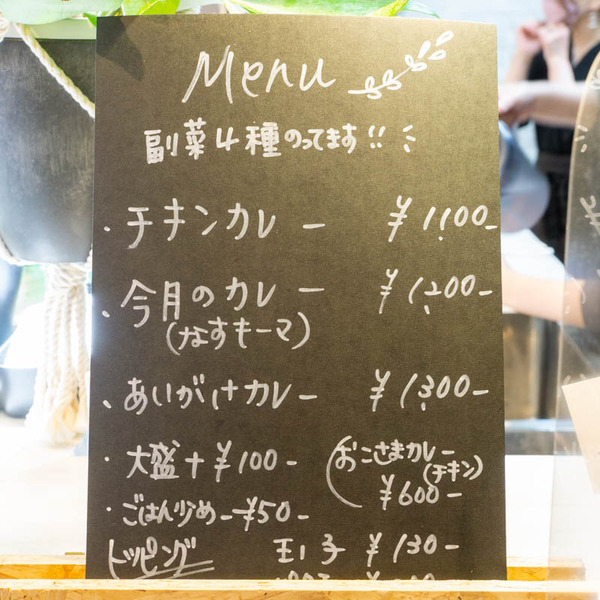 Menu
副菜4種のってます!!
・チキンカレー ¥1,100-
・今月のカレー ¥1,200-
(なすキーマ)
・あいがけカレー ¥1,300-
・大盛+¥100-
おこさまカレー
(チキン)
¥600-
・ごはん少め-¥50-
トッピング 玉子 ¥130-